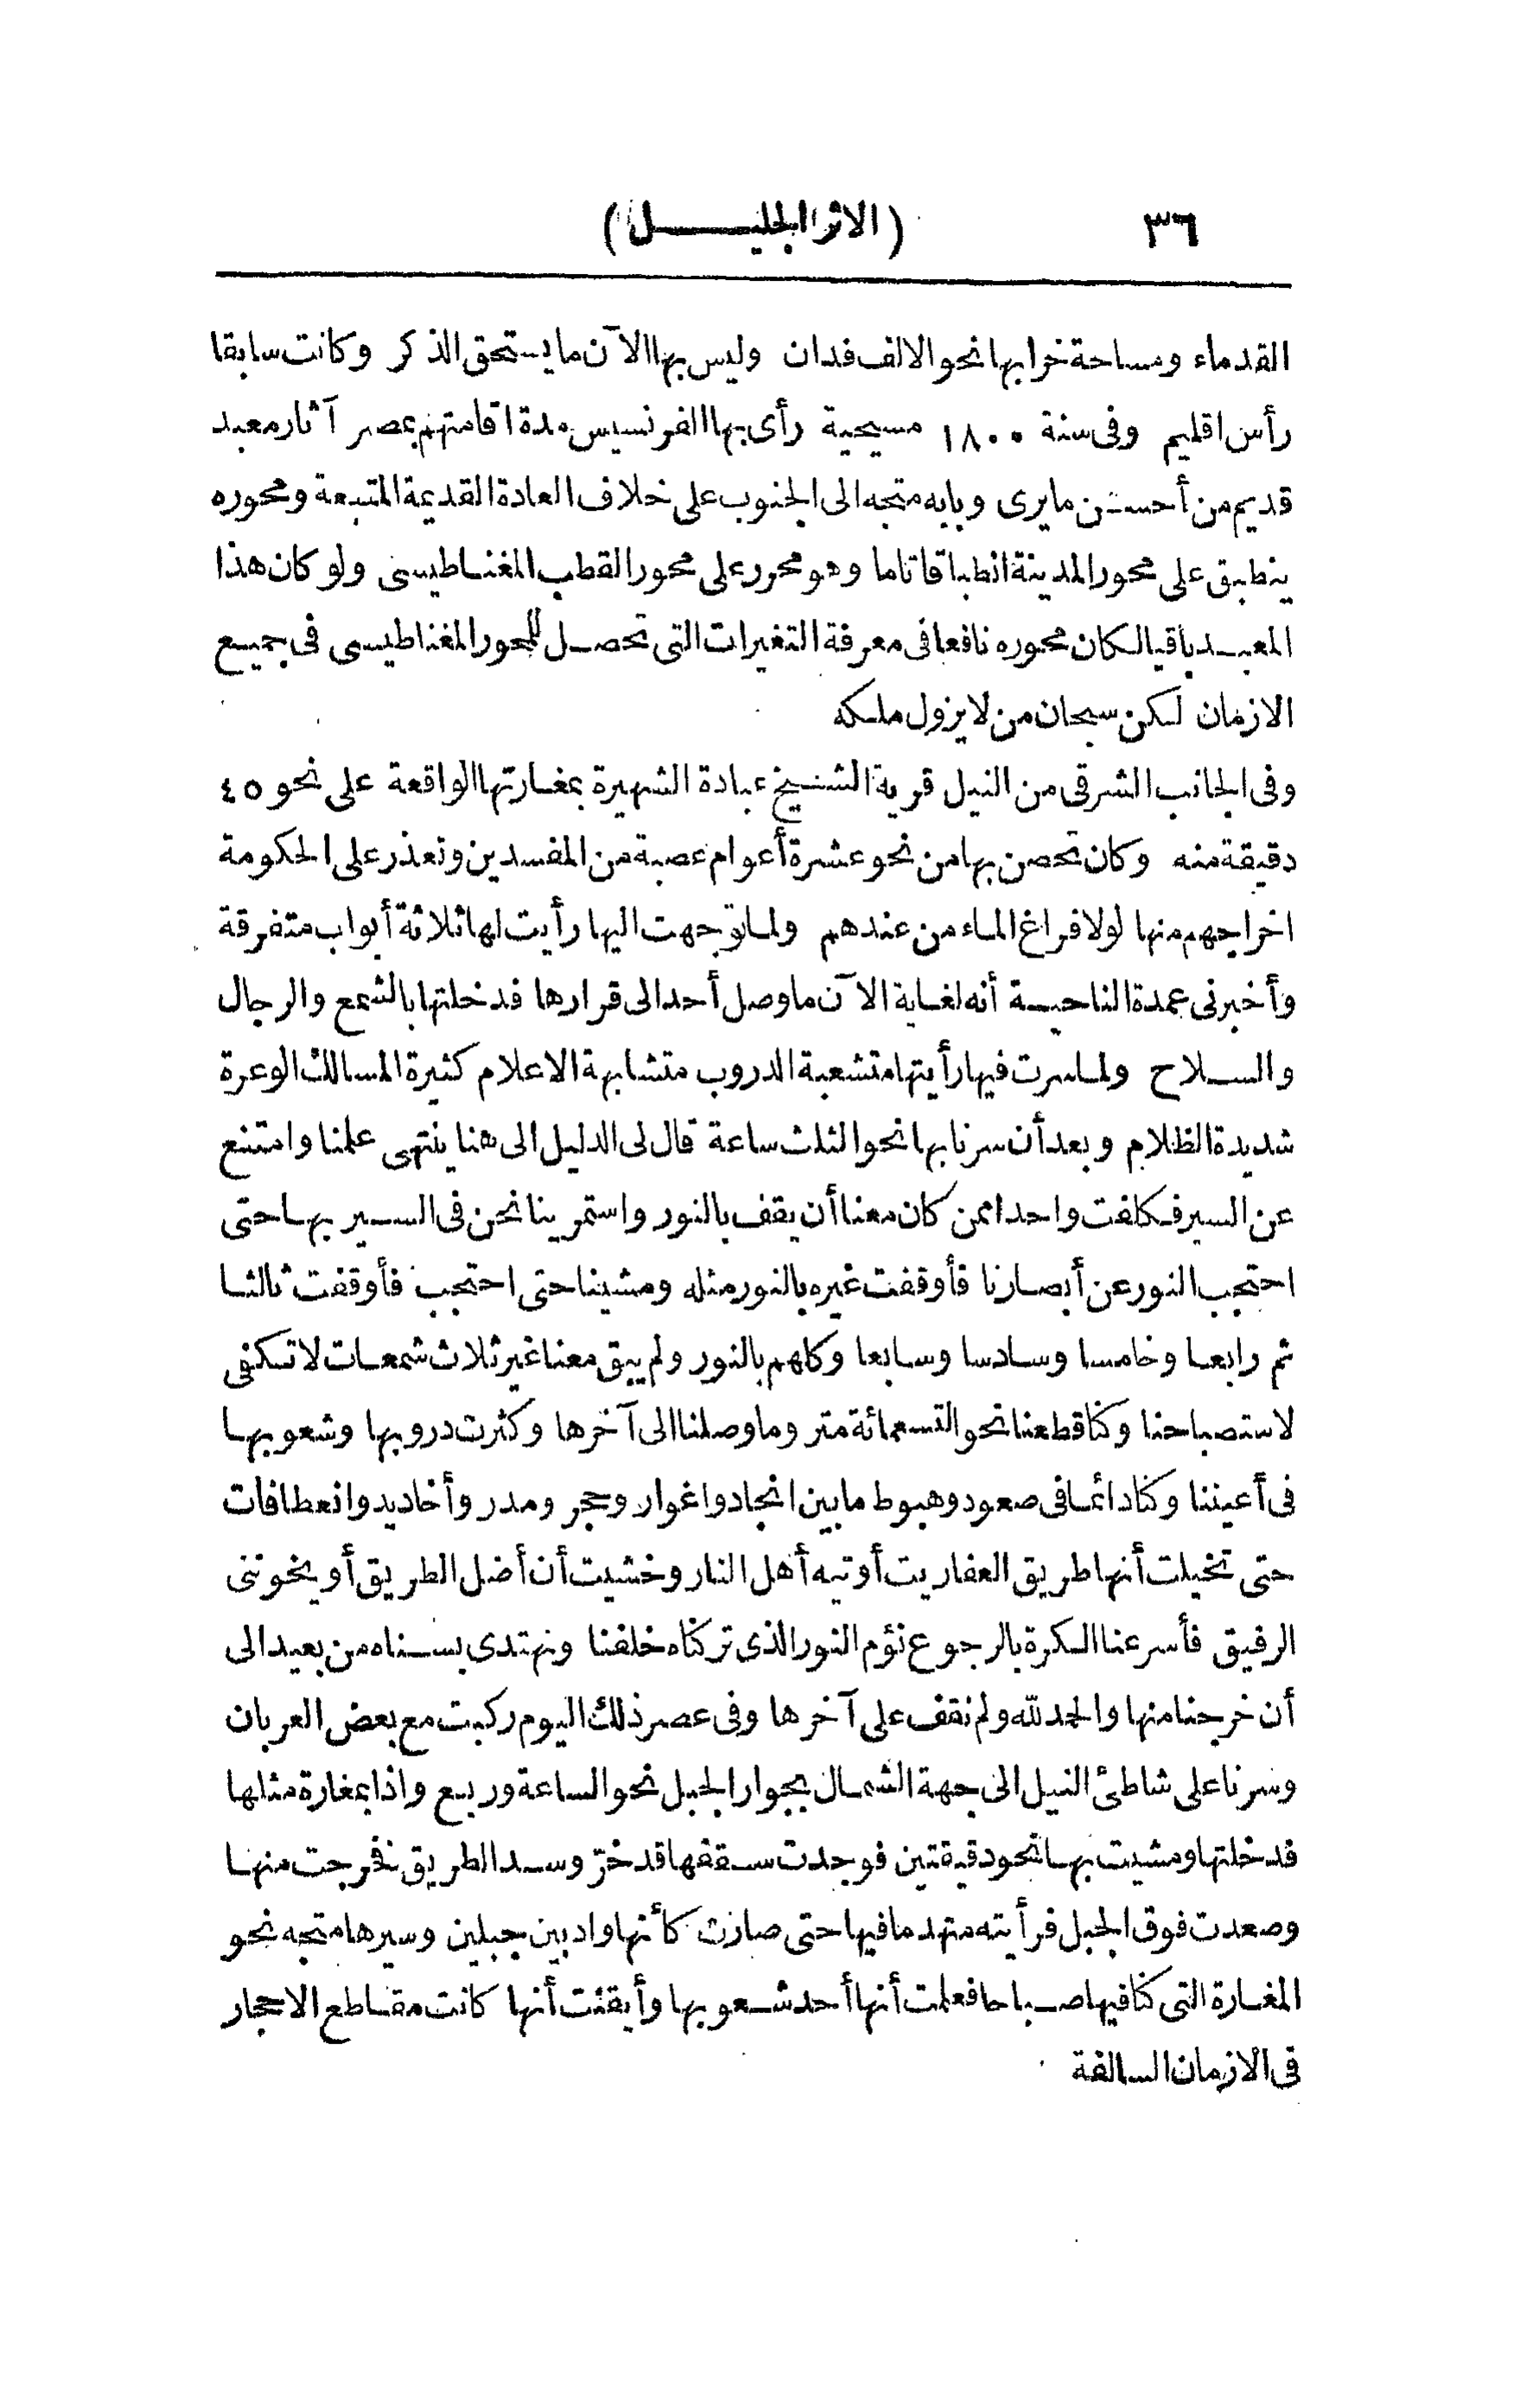 ٣٦ (الاثر الجليـــل)
القدماء ومساحة خرابها نحو الالف فدان وليس بها الآن ما يستحق الذكر وكانت سابقا
رأس اقليم وفى سنة ١٨٠٠ مسيحية رأى بها الفرنسيس مدة اقامتهم بمصر آثار معبد
قديم من أحسن ما يرى وبابه متجه الى الجنوب على خلاف العادة القديمة المتبعة ومحوره
ينطبق على محور المدينة انطباقا تاما وهو محرر على محور القطب المغناطيسى ولو كان هذا
المعبد باقيا لكان محوره نافعا فى معرفة التغيرات التى تحصل للمحور المغناطيسى فى جميع
الازمان لكن سبحان من لا يزول ملكه
وفى الجانب الشرقى من النيل قرية الشيخ عبادة الشهيرة بمغارتها الواقعة على نحو ٤٥
دقيقة منه وكان تحصن بها من نحو عشرة أعوام عصبة من المفسدين وتعذر على الحكومة
اخراجهم منها لولا فراغ الماء من عندهم ولما توجهت اليها رأيت لها ثلاثة أبواب متفرقة
وأخبرنى عمدة الناحية أنه لغاية الآن ما وصل أحد الى قرارها فدخلتها بالشمع والرجال
والسلاح ولما سرت فيها رأيتها متشعبة الدروب متشابهة الاعلام كثيرة المسالك الوعرة
شديدة الظلام وبعد أن سرنا بها نحو الثلث ساعة قال لى الدليل الى هنا ينتهى علمنا وامتنع
عن السير فكلفت واحدا ممن كان معنا أن يقف بالنور واستمرينا نحن فى السير بها حتى
احتجب النور عن أبصارنا فأوقفت غيره بالنور مثله ومشينا حتى احتجب فأوقفت ثالثا
ثم رابعا وخامسا وسادسا وسابعا وكلهم بالنور ولم يبق معنا غير ثلاث شمعات لا تكفى
لاستصباحنا وكنا قطعنا نحو التسعمائة متر وما وصلنا الى آخرها وكثرت دروبها وشعوبها
فى أعيننا وكنا دائما فى صعود وهبوط ما بين انجاد واغوار وحجر ومدر وأخاديد وانعطافات
حتى تخيلت أنها طريق العفاريت أو تيه أهل النار وخشيت أن أضل الطريق أو يخوننى
الرفيق فأسرعنا الكرة بالرجوع نؤم النور الذى تركناه خلفنا ونهتدى بسناه من بعيد الى
أن خرجنا منها والحمد لله ولم نقف على آخرها وفى عصر ذلك اليوم ركبت مع بعض العربان
وسرنا على شاطئ النيل الى جهة الشمال بجوار الجبل نحو الساعة وربع واذا بمغارة مثلها
فدخلتها ومشيت بها نحو دقيقتين فوجدت سقفها قد خرّ وسد الطريق نخرجت منها
وصعدت فوق الجبل فرأيته متهدما فيها حتى صارت كأنها واد بين جبلين وسيرها متجه نحو
المغارة التى كنا فيها صباحا فعلمت أنها أحد شعوبها وأيقنت أنها كانت مقاطع الاحجار
فى الازمان السالفة